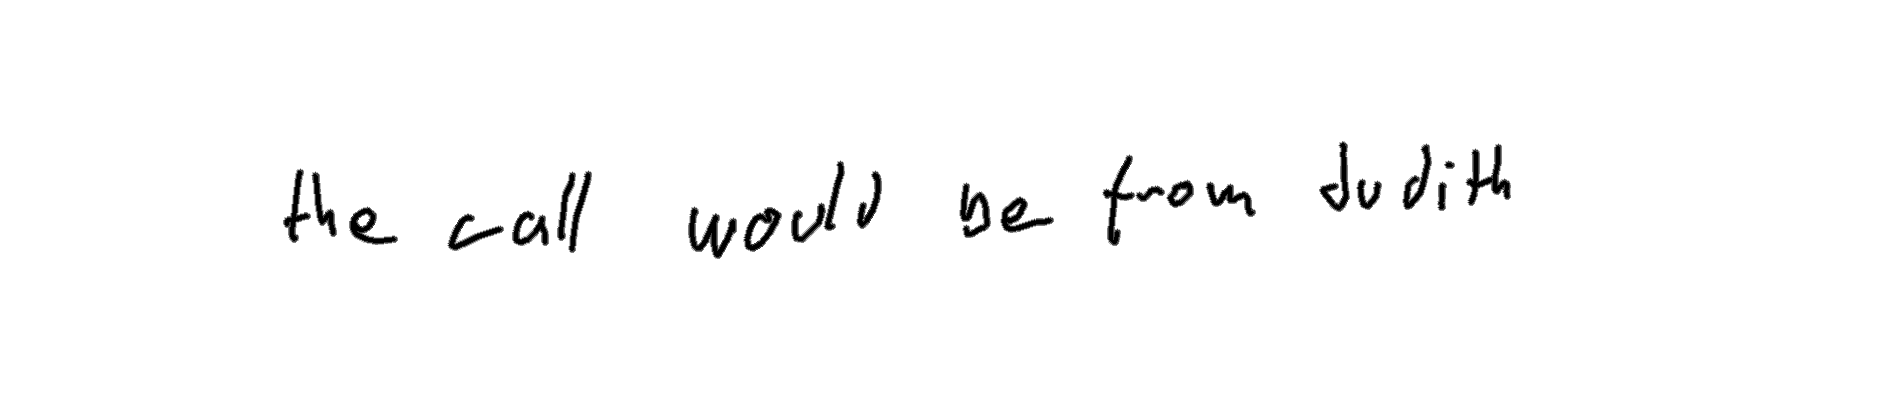 the call would be from Judith